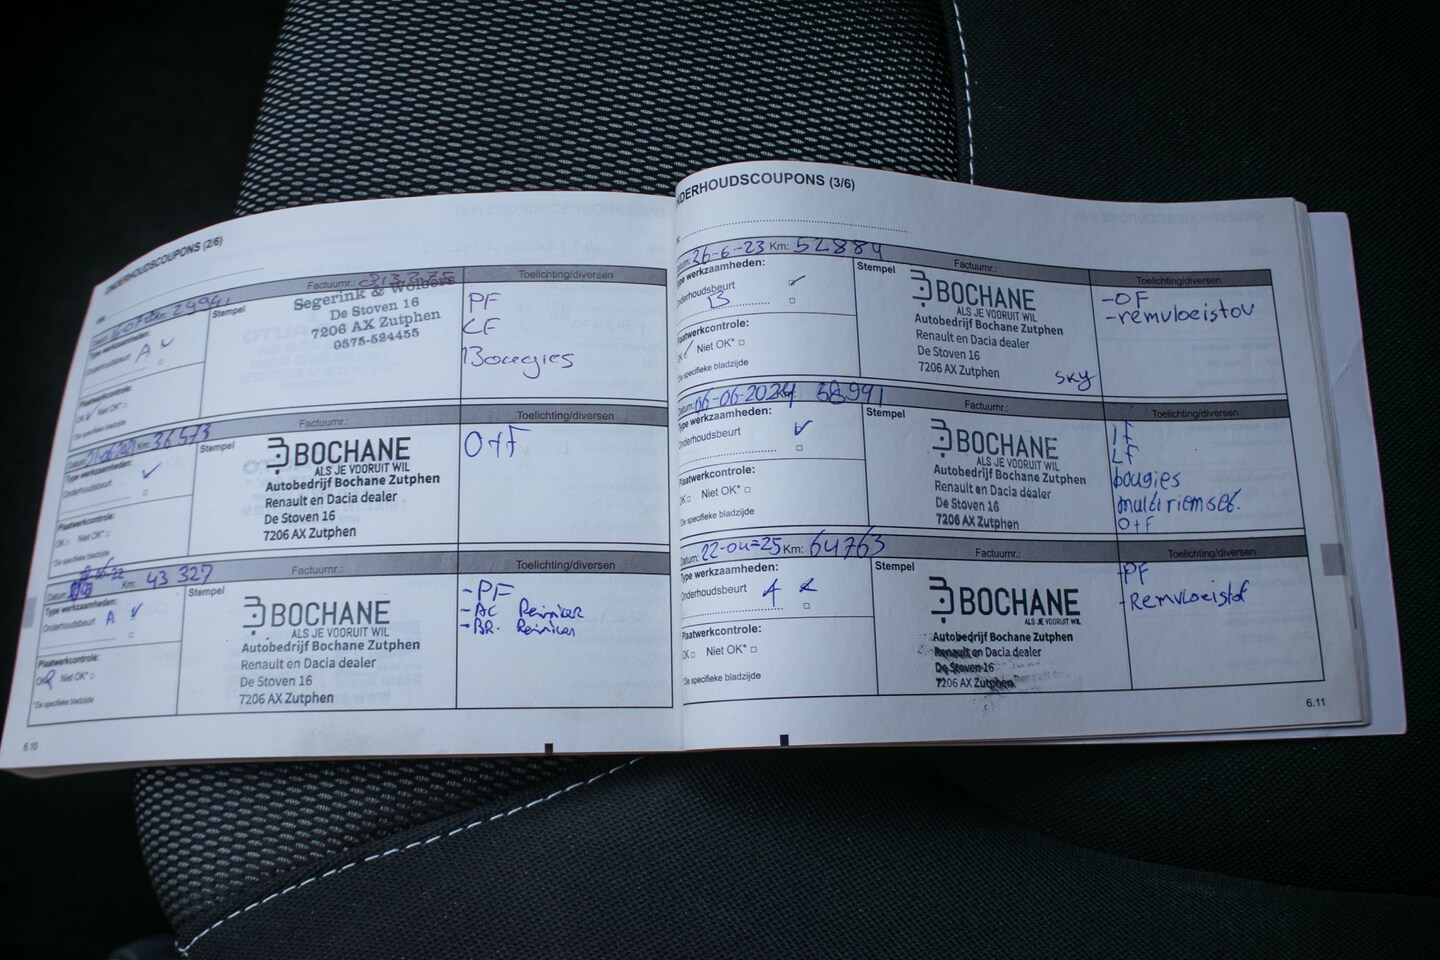 ONDERHOUDSCOUPONS (2/6)
Factuurnr.: 313775
Toelichting/diversen
Km: 29941
Type werkzaamheden:
Onderhoudsbeurt A
Plaatwerkcontrole:
OK Niet OK*
*De specifieke bladzijde
Stempel
Segerink & Wolbers
De Stoven 16
7206 AX Zutphen
0575-524455
PF
CF
Bougies
Datum: Km: 36573
Factuurnr.:
Toelichting/diversen
Type werkzaamheden:
Onderhoudsbeurt
Plaatwerkcontrole:
OK Niet OK*
*De specifieke bladzijde
Stempel
BOCHANE
ALS JE VOORUIT WIL
Autobedrijf Bochane Zutphen
Renault en Dacia dealer
De Stoven 16
7206 AX Zutphen
O+F
Datum: Km: 43 327
Factuurnr.:
Toelichting/diversen
Type werkzaamheden:
Onderhoudsbeurt A
Plaatwerkcontrole:
OK Niet OK*
*De specifieke bladzijde
Stempel
BOCHANE
ALS JE VOORUIT WIL
Autobedrijf Bochane Zutphen
Renault en Dacia dealer
De Stoven 16
7206 AX Zutphen
-PF
-AC Reiniger
-BR. Reiniger
6.10
NDERHOUDSCOUPONS (3/6)
Datum: 26-6-23 Km: 52884
Factuurnr.:
Toelichting/diversen
Type werkzaamheden:
Onderhoudsbeurt
B
Plaatwerkcontrole:
OK Niet OK*
*De specifieke bladzijde
Stempel
BOCHANE
ALS JE VOORUIT WIL
Autobedrijf Bochane Zutphen
Renault en Dacia dealer
De Stoven 16
7206 AX Zutphen
SKY
-OF
-remvloeistov
Datum: 06-06-2024 Km: 58991
Factuurnr.:
Toelichting/diversen
Type werkzaamheden:
Onderhoudsbeurt
Plaatwerkcontrole:
OK Niet OK*
*De specifieke bladzijde
Stempel
BOCHANE
ALS JE VOORUIT WIL
Autobedrijf Bochane Zutphen
Renault en Dacia dealer
De Stoven 16
7206 AX Zutphen
IF
LF
bougies
multiriemset.
O+F
Datum: 22-04-25 Km: 64763
Factuurnr.:
Toelichting/diversen
Type werkzaamheden:
Onderhoudsbeurt A
Plaatwerkcontrole:
OK Niet OK*
*De specifieke bladzijde
Stempel
BOCHANE
ALS JE VOORUIT WIL
Autobedrijf Bochane Zutphen
Renault en Dacia dealer
De Stoven 16
7206 AX Zutphen
-PF
-Remvloeistof
6.11